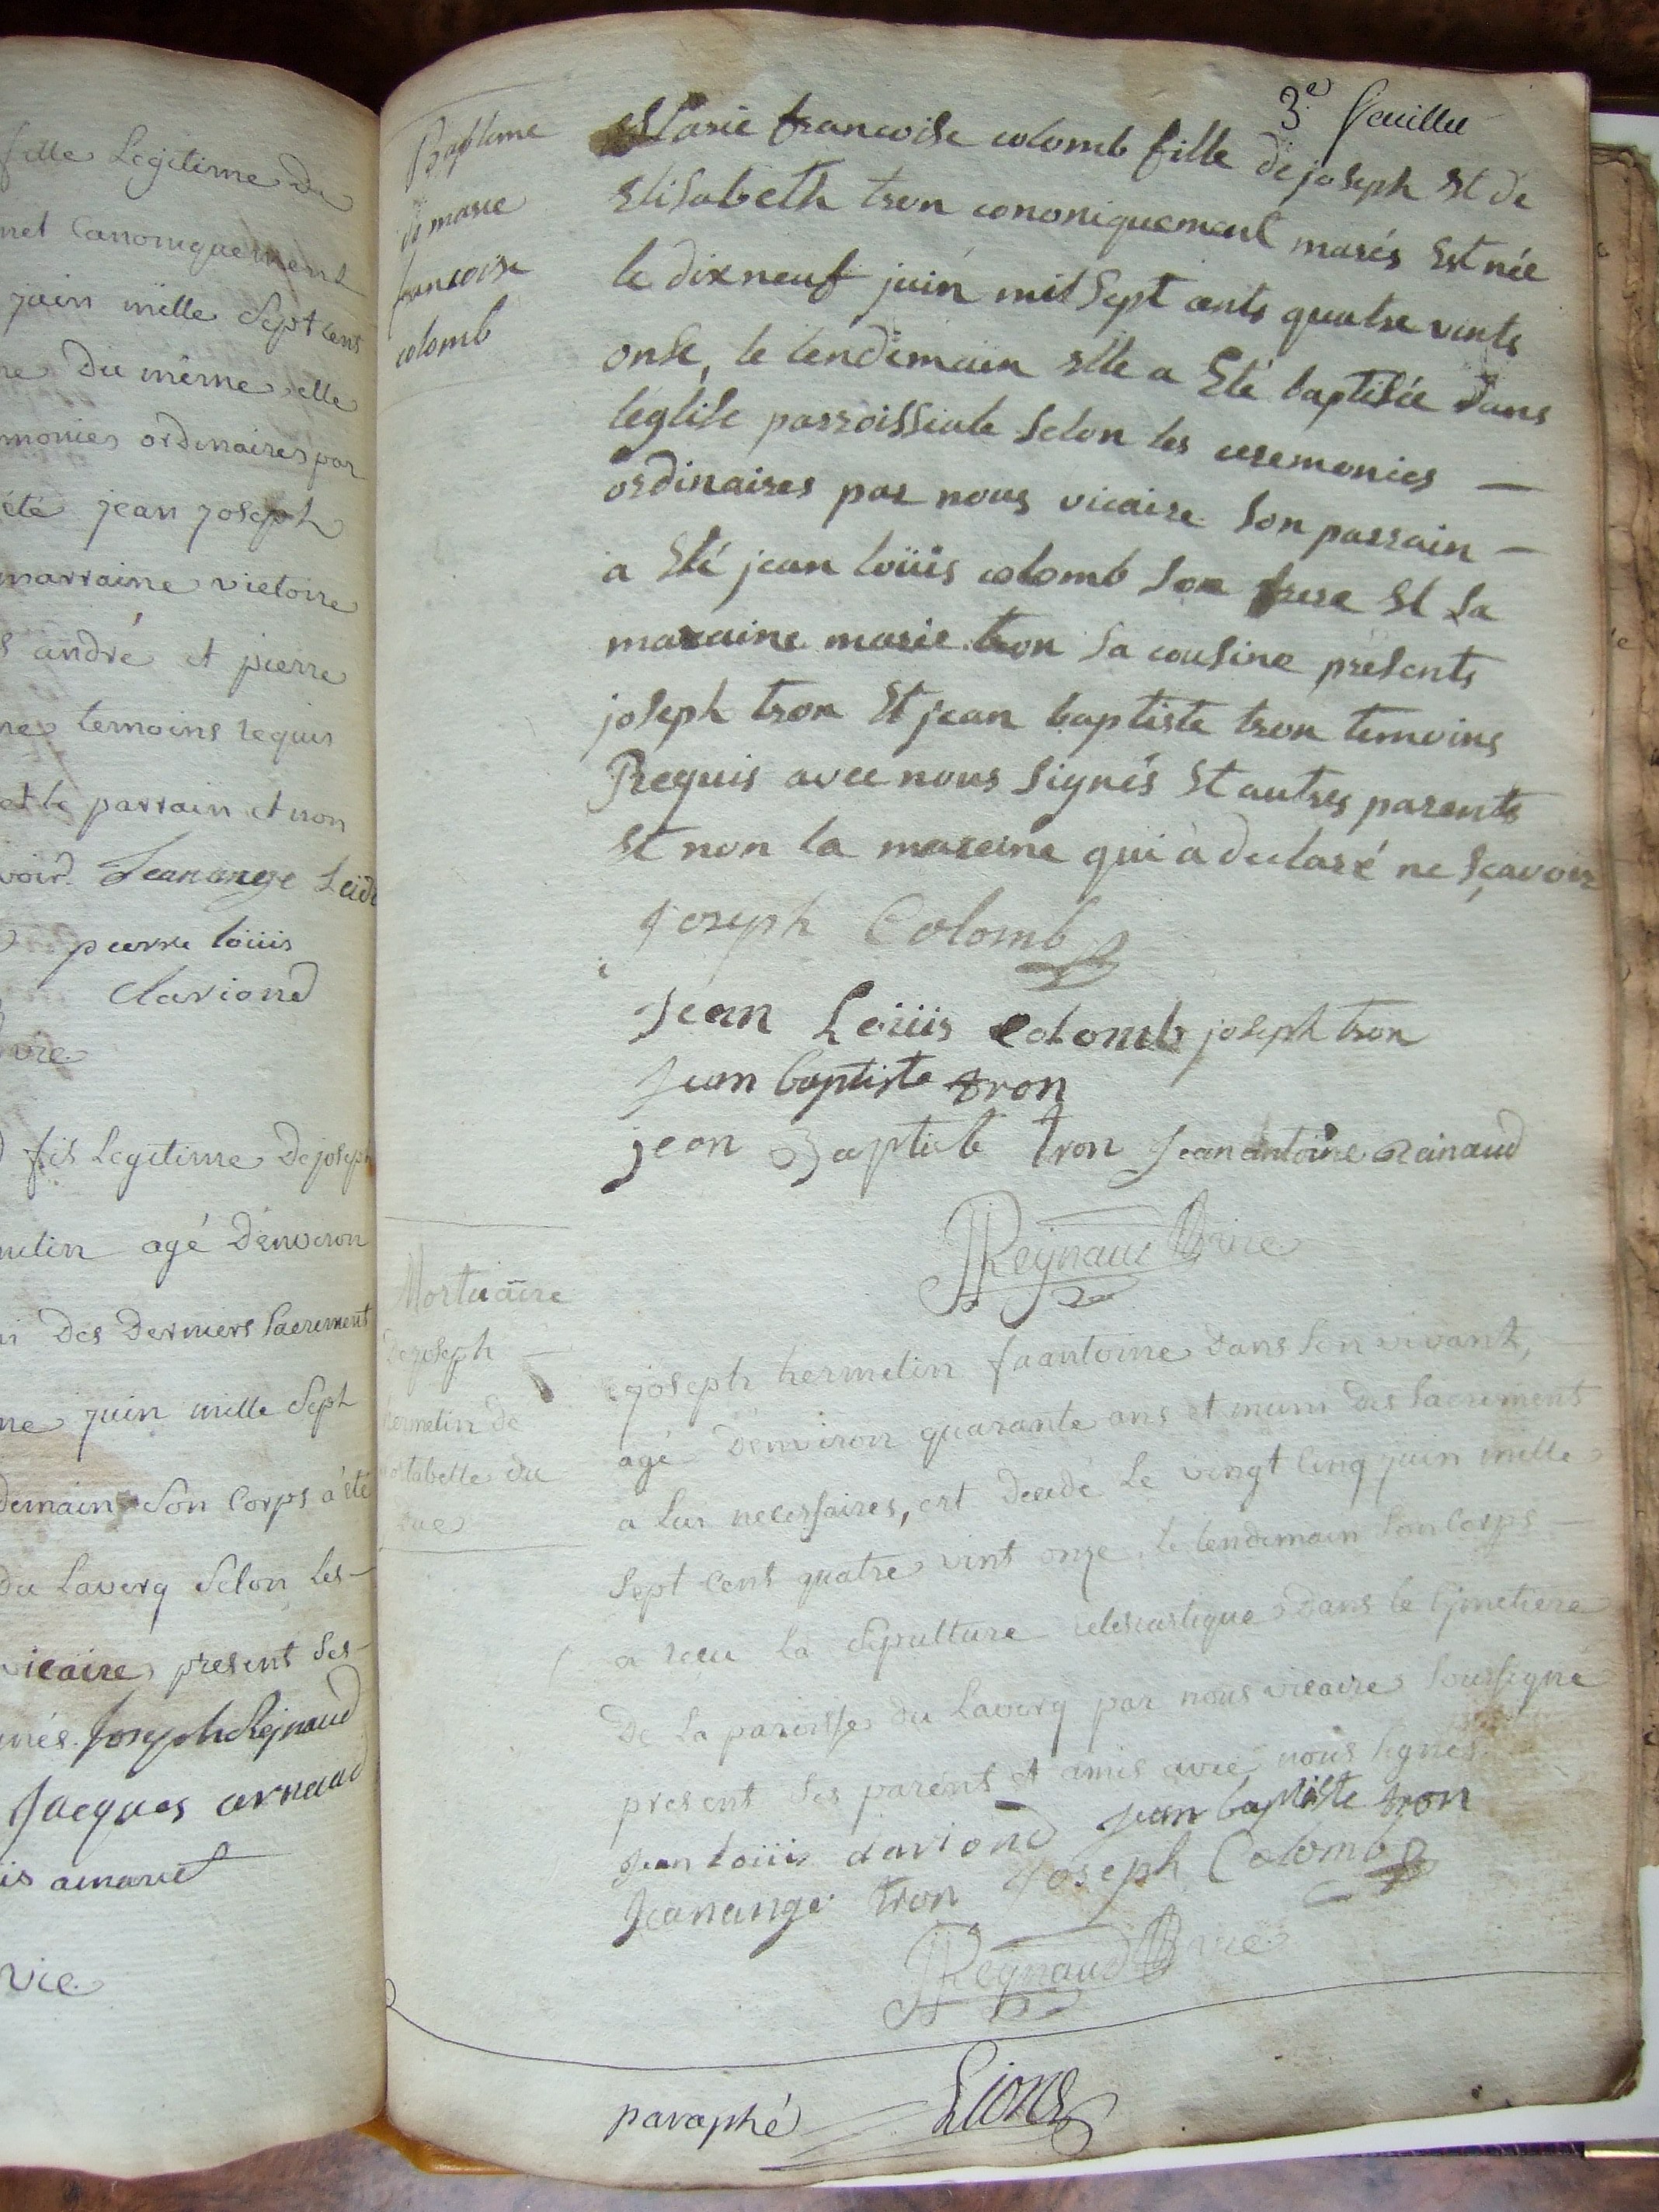 fille Legitime du
net Canoniquement
juin mille Sept cent
Du même elle
monies ordinaires par
été jean joseph
marraine victoire
andré et pierre
temoins requis
et le parrain et non
voir. Jean ange
pierre loüis
Clariond
vic
fils Legitime De joseph
melin agé D'environ
Des Derniers Sacrement
juin mille Sept
demain Son Corps a été
Du Laverq Selon les
vicaire present Ses
nés. Joseph Rejnaud
Jacques arnaud
vic
3e feuillet
Baptême
de marie
francoise
colomb
Marie francoise colomb fille de joseph Et de
Elisabeth tron cononiquement mariés Est née
le dixneuf juin mil Sept cents quatre vints
onse, le lendemain elle a Eté baptisée dans
leglise parroissiale Selon les ceremonies
ordinaires par nous vicaire Son parrain
a Eté jean loüis colomb Son frere Et Sa
maraine marie tron Sa cousine présents
joseph tron Et jean baptiste tron temoins
Requis avec nous Signés Et autres parents
Et non la mareine qui à declaré ne Sçavoir
Joseph Colomb
Jean Loüis colomb joseph tron
jean baptiste tron
jean Baptiste tron Jean antoine Rainaud
Reynaud vice
Mortuaire
De joseph
hermelin De
du
joseph hermelin fu antoine Dans Son vivant,
agé Denviron quarante ans et muni Des Sacrement
a lui necessaires, est Decedé Le vingt Cinq juin mille
Sept Cent quatre vint onze, le lendemain Son Corps
a recu la Sepulture eclesiastique Dans le Cymetiere
De la paroisse du Laverq par nous vicaire Soussigné
present Ses parents et amis avec nous Signés
Jean loüis clariond Jean baptiste tron
Jean ange tron Joseph Colomb
Reynaud vic
paraphé Lions